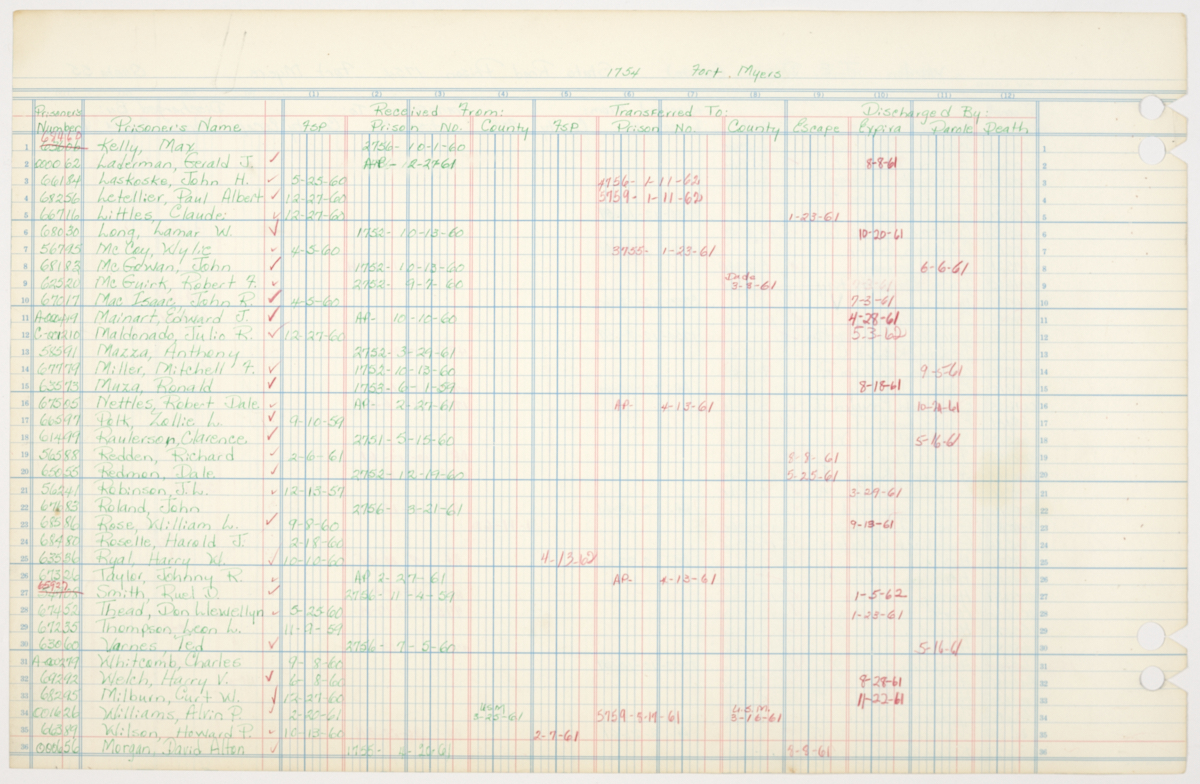 1754 Fort. Myers
(1) (2) (3) (4) (5) (6) (7) (8) (9) (10) (11) (12)
Prisoner's Received From: Transferred To: Discharged By:
Number Prisoner's Name FSP Prison No. County FSP Prison No. County Escape Expira Parole Death
1 Kelly, Max 2756- 10-1-60 1
2 000062 Laderman, Gerald J. ✓ AP- 12-27-61 8-8-61 2
3 66184 Laskoske, John H. ✓ 5-25-60 4756- 1-11-62 3
4 68256 Letellier, Paul Albert ✓ 12-27-60 5759- 1-11-62 4
5 66716 Littles, Claude ✓ 12-27-60 1-23-61 5
6 68030 Long, Lamar W. ✓ 1752- 10-13-60 10-20-61 6
7 56795 McCoy, Wylie ✓ 4-5-60 3755- 1-23-61 7
8 68183 McGowan, John ✓ 1752- 10-13-60 6-6-61 8
9 McGuirk, Robert F. ✓ 2752- 9-7-60 Dade 3-8-61 9
10 67017 Mac Isaac, John R. ✓ 4-5-60 7-3-61 10
11 Mainart, Edward J. ✓ AP- 10-10-60 4-28-61 11
12 Maldonado, Julio R. ✓ 12-27-60 5-3-62 12
13 58591 Mazza, Anthony 2752- 3-29-61 13
14 67779 Miller, Mitchell F. ✓ 1752- 10-13-60 9-5-61 14
15 63573 Maza, Ronald ✓ 1753- 6-1-59 8-18-61 15
16 67505 Nettles, Robert Dale ✓ AP- 2-27-61 AP- 4-13-61 16
17 66597 Polk, Zollie L. ✓ 9-10-59 17
18 61499 Raulerson, Clarence ✓ 2751- 5-15-60 5-16-61 18
19 56588 Redden, Richard ✓ 2-6-61 8-8-61 19
20 65055 Redmon, Dale ✓ 2752- 12-19-60 5-25-61 20
21 56241 Robinson, J.L. ✓ 12-13-57 3-29-61 21
22 Roland, John 2756- 3-21-61 22
23 68586 Rose, William L. ✓ 9-8-60 9-13-61 23
24 68480 Roselle, Harold J. 2-18-60 24
25 63556 Ryal, Harry W. ✓ 10-10-60 4-13-62 25
26 67526 Taylor, Johnny R. ✓ AP 2-27-61 AP- 4-13-61 26
27 Smith, Ruel D. ✓ 2756- 11-4-59 1-5-62 27
28 67452 Thead, Don Llewellyn ✓ 5-25-60 1-23-61 28
29 67235 Thompson, Leon L. 11-9-59 29
30 63060 Varnes, Ted ✓ 2756- 7-5-60 5-16-61 30
31 Whitcomb, Charles 9-8-60 31
32 69292 Welch, Harry V. ✓ 6-8-60 8-28-61 32
33 68295 Milburn, Art W. ✓ 12-27-60 11-22-61 33
34 001626 Williams, Alvin P. ✓ 2-20-61 USM 5-25-61 5759- 8-19-61 U.S.M. 3-16-61 34
35 66389 Wilson, Howard P. ✓ 10-13-60 2-7-61 35
36 000656 Morgan, David Alton ✓ 36